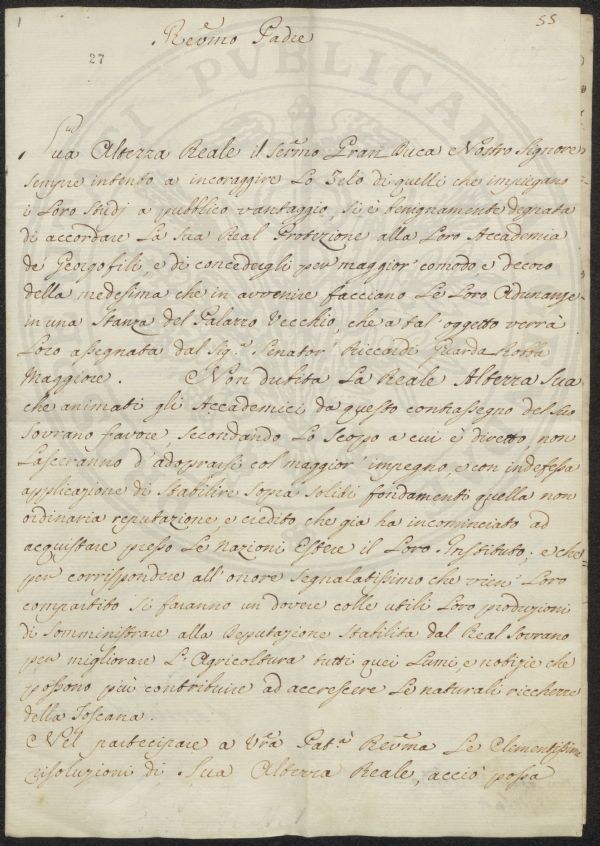 55
Revmo Padre
27
Sua Altezza Reale il Sermo Gran Duca e Nostro Signore
sempre intento a incoraggire Lo Zelo di quelli che impiegano
i Loro Studj a pubblico vantaggio, si è benignamente degnata
di accordare La Sua Real Protezione alla Loro Accademia
de' Georgofili, e di concedergli per maggior comodo, e decoro
della medesima che in avvenire facciano Le Loro Adunanze
in una Stanza del Palazzo Vecchio, che a tal'oggetto verrà
Loro assegnata dal Sig.r Senator Riccardi Guarda Robba
Maggiore. Non dubita La Reale Altezza Sua
che animati gli Accademici da questo contrassegno del suo
Sovrano favore, secondando Lo Scopo a cui è diretto, non
Lasceranno d'adoprarsi col maggior impegno, e con indefessa
applicazione di Stabilire sopra solidi fondamenti quella non
ordinaria reputazione, e credito che già ha incominciato ad
acquistare presso Le Nazioni Estere il Loro Instituto; e che
per corrispondere all'onore segnalatissimo che vien Loro
compartito si faranno un dovere colle utili Loro produzioni
di somministrare alla Deputazione Stabilita dal Real Sovrano
per migliorare L'Agricoltura tutti quei Lumi, e notizie che
possono più contribuire ad accrescere Le naturali ricchezze
della Toscana.
Nel partecipare a Vra Pat.a Revma Le Clementissime
risoluzioni di Sua Altezza Reale, acciò possa